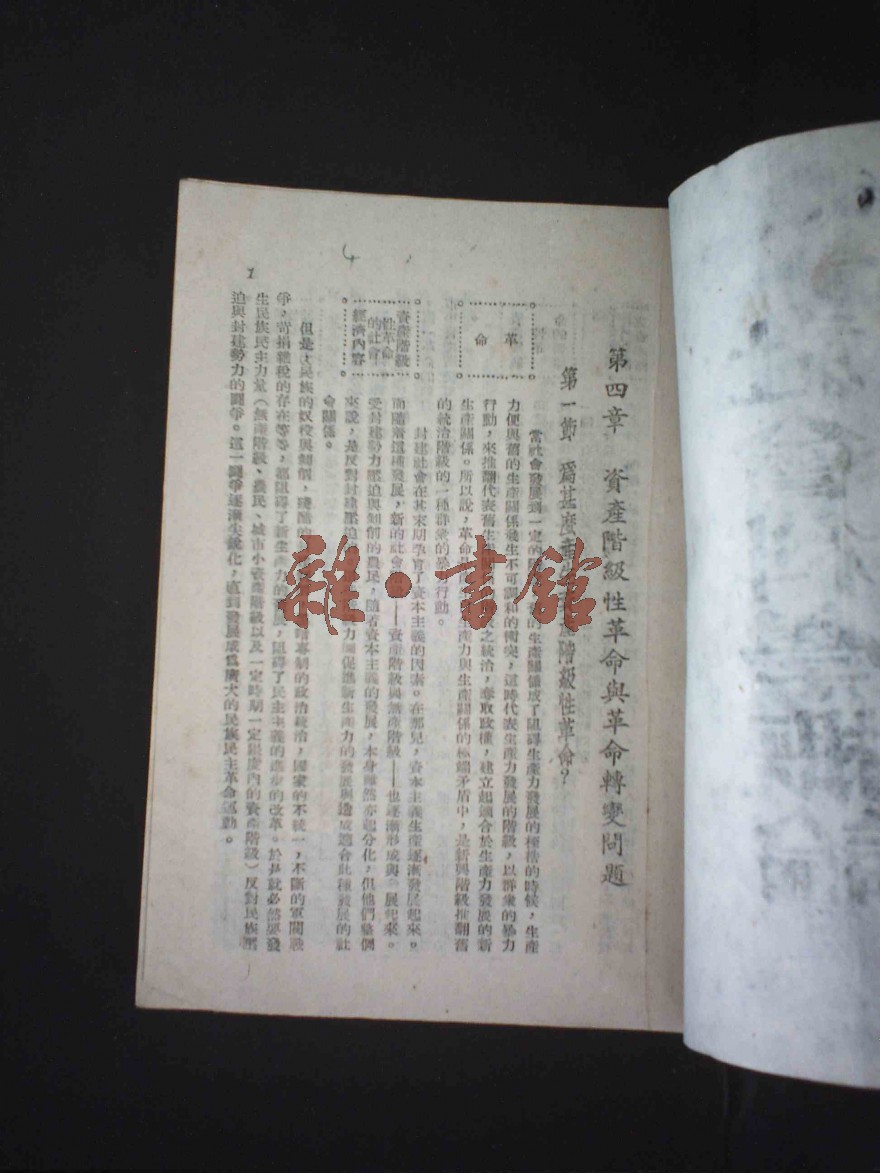 第四章 資產階級性革命與革命轉變問題
第一節 爲甚麼產生資產階級性革命？
革
命
當社會發展到一定的 的生產關係成了阻碍生產力發展的桎梏的時候，生產
力便與舊的生產關係發生不可調和的衝突，這時代表生產力發展的階級，以羣衆的暴力
行動，來推翻代表舊生 之統治，奪取政權，建立起適合於生產力發展的新
生產關係。所以說，革命是 生產力與生產關係的極端矛盾中，是新興階級推翻舊
的統治階級的一種羣衆的暴 行動。
資產階級
性革命
的社會
經濟內容
封建社會在其末期孕育了資本主義的因素。在那兒，資本主義生產逐漸發展起來。
而隨着這種發展，新的社會 ——資產階級與無產階級——也逐漸形成與 展起來。
受封建勢力壓迫與 的農民，隨着資本主義的發展，本身雖然亦起分化，但他們整個
來說，是反對封建壓迫 力圖促進新生產力的發展與造成適合此種發展的社
會關係。
但是，民族的奴役與 ，殘酷的 專制的政治統治，國家的不統一，不斷的軍閥戰
爭，苛捐雜稅的存在等等，都阻碍了新生產力的 展，阻碍了民主主義的進步的改革。於是就必然要發
生民族民主力量（無產階級、農民、城市小資產階級以及一定時期一定限度內的資產階級）反對民族壓
迫與封建勢力的鬪爭。這一鬪爭逐漸尖銳化，直到發展成爲廣大的民族民主革命運動。
1
雜·書館